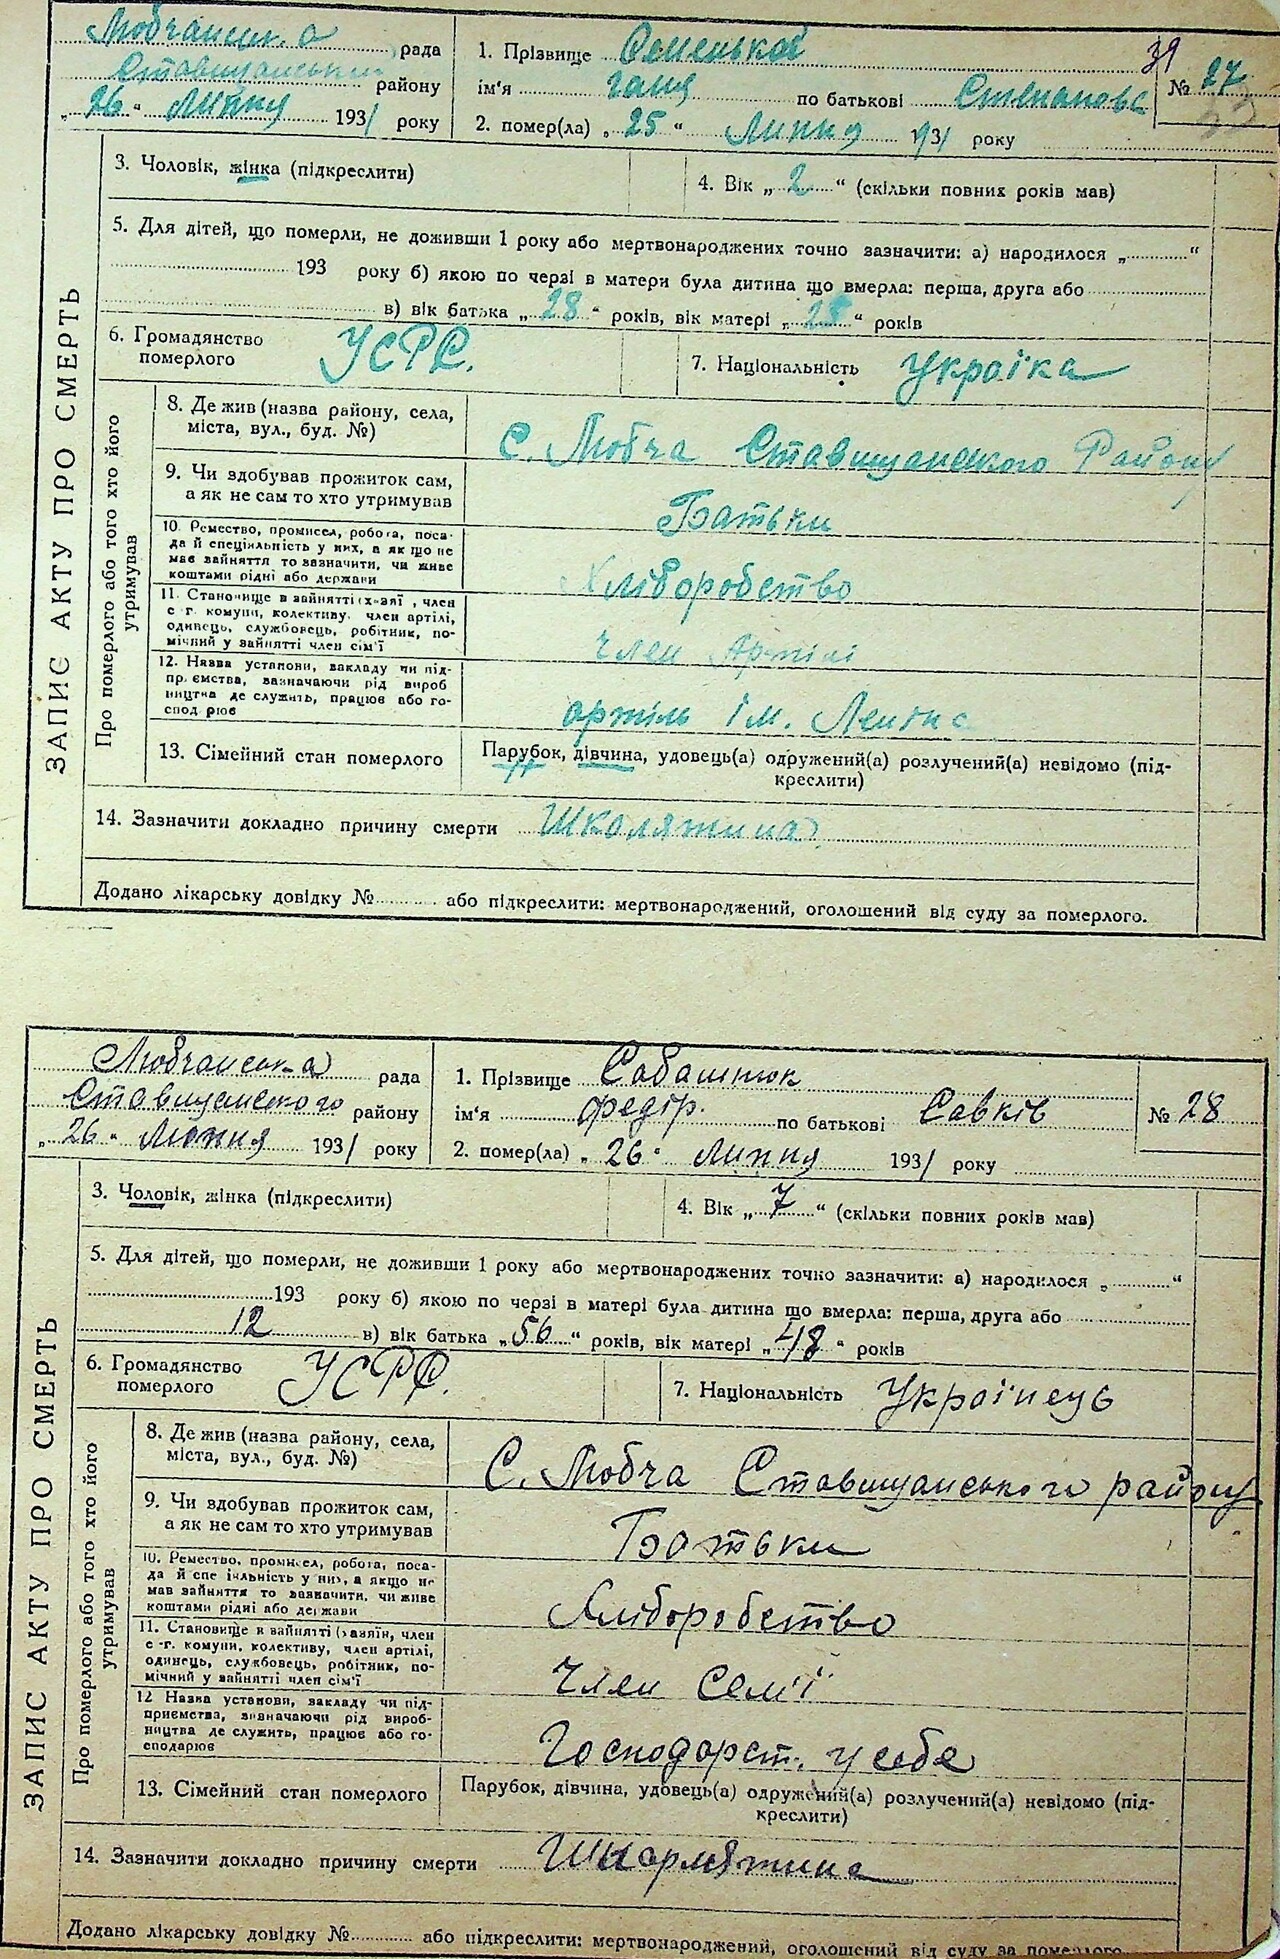 Любчанськ. а рада
Ставищанський району
„ 26 " Липня 1931 року
1. Прізвище Семенькой
ім'я Ганя по батькові Степанова
2. помер(ла) „ 25 " Липня 1931 року
39
№ 27
3. Чоловік, жінка (підкреслити)
4. Вік „ 2 " (скільки повних років мав)
5. Для дітей, що померли, не доживши 1 року або мертвонароджених точно зазначити: а) народилося „ "
193 року б) якою по черзі в матери була дитина що вмерла: перша, друга або
в) вік батька „ 28 " років, вік матері „ 28 " років
6. Громадянство
померлого
УСРР.
7. Національність Українка
ЗАПИС АКТУ ПРО СМЕРТЬ
Про померлого або того хто його
утримував
8. Де жив (назва району, села,
міста, вул., буд. №)
С. Любча Ставищанського Району
9. Чи здобував прожиток сам,
а як не сам то хто утримував
Батьки
10. Ремество, промисел, робота, поса-
да й спеціяльність у них, а як що не
має зайняття то зазначити, чи живе
коштами рідні або держави
Хліборобство
11. Становище в зайнятті (х-зяї , член
с г. комуни, колективу, член артілі,
одинець, службовець, робітник, по-
мічний у зайнятті член сім'ї
Член Артілі
12. Назва установи, закладу чи під-
пр. ємства, зазначаючи рід вироб
ництва де служить, працює або го-
спод рює
артіль ім. Леніна
13. Сімейний стан померлого
Парубок, дівчина, удовець(а) одружений(а) розлучений(а) невідомо (під-
креслити)
14. Зазначити докладно причину смерти Школятина
Додано лікарську довідку № або підкреслити: мертвонароджений, оголошений від суду за померлого.
Любчанська рада
Ставищанского району
„ 26 " Липня 1931 року
1. Прізвище Сабашнюк
ім'я Федір. по батькові Савків
2. помер(ла) „ 26 " Липня 1931 року
№ 28
3. Чоловік, жінка (підкреслити)
4. Вік „ 7 " (скільки повних років мав)
5. Для дітей, що померли, не доживши 1 року або мертвонароджених точно зазначити: а) народилося „ "
193 року б) якою по черзі в матері була дитина що вмерла: перша, друга або
12 в) вік батька „ 56 " років, вік матері „ 48 " років
6. Громадянство
померлого
УСРР.
7. Національність Українець
ЗАПИС АКТУ ПРО СМЕРТЬ
Про померлого або того хто його
утримував
8. Де жив (назва району, села,
міста, вул., буд. №)
С. Любча Ставищанського району
9. Чи здобував прожиток сам,
а як не сам то хто утримував
Батьки
10. Ремество, промисел, робота, поса-
да й спе іяльність у них, а якщо не
мав зайняття то зазначити, чи живе
коштами рідні або держави
Хліборобство
11. Становище в зайнятті (хазяїн, член
с -г. комуни, колективу, член артілі,
одинець, службовець, робітник, по-
мічний у зайнятті член сім'ї
Член Сем'ї
12 Назва установи, закладу чи під-
приємства, зазначаючи рід вироб-
ництва де служить, працює або го-
сподарює
Господарст. у себе
13. Сімейний стан померлого
Парубок, дівчина, удовець(а) одружений(а) розлучений(а) невідомо (під-
креслити)
14. Зазначити докладно причину смерти Шкарлятина
Додано лікарську довідку № або підкреслити: мертвонароджений, оголошений від суду за померлого